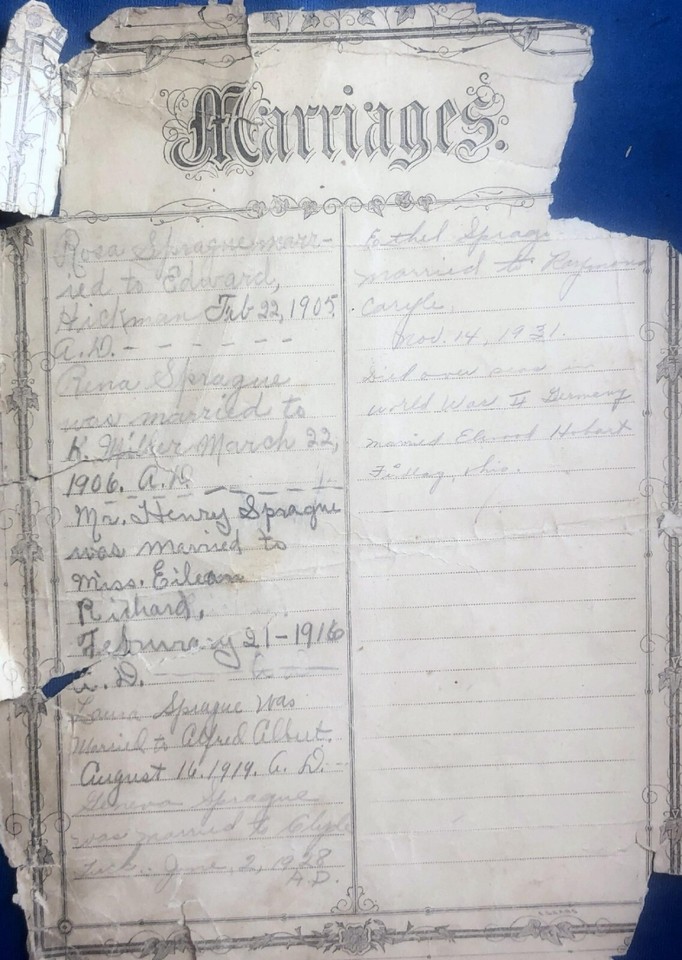 Marriages.
Rosa Sprague marr-
ied to Edward,
Hickman Feb 22, 1905.
A.D. - - - - - -
Rena Sprague
was married to
K. Miller March 22,
1906. A.D.
Mr. Henry Sprague
was married to
Miss. Eilean
Richard,
February 21-1916
A. D.
Laura Sprague was
Married to Alfred Albert.
August 16. 1919. A. D.
Geneva Sprague
was married to Clyde
June, 2, 1928
A.D.
Ethel Sprag
married to Raymond
Caryle,
Nov. 14, 1931.
Died over seas in
World War II Germany
married Elwood Hobart
Findlay, Ohio.